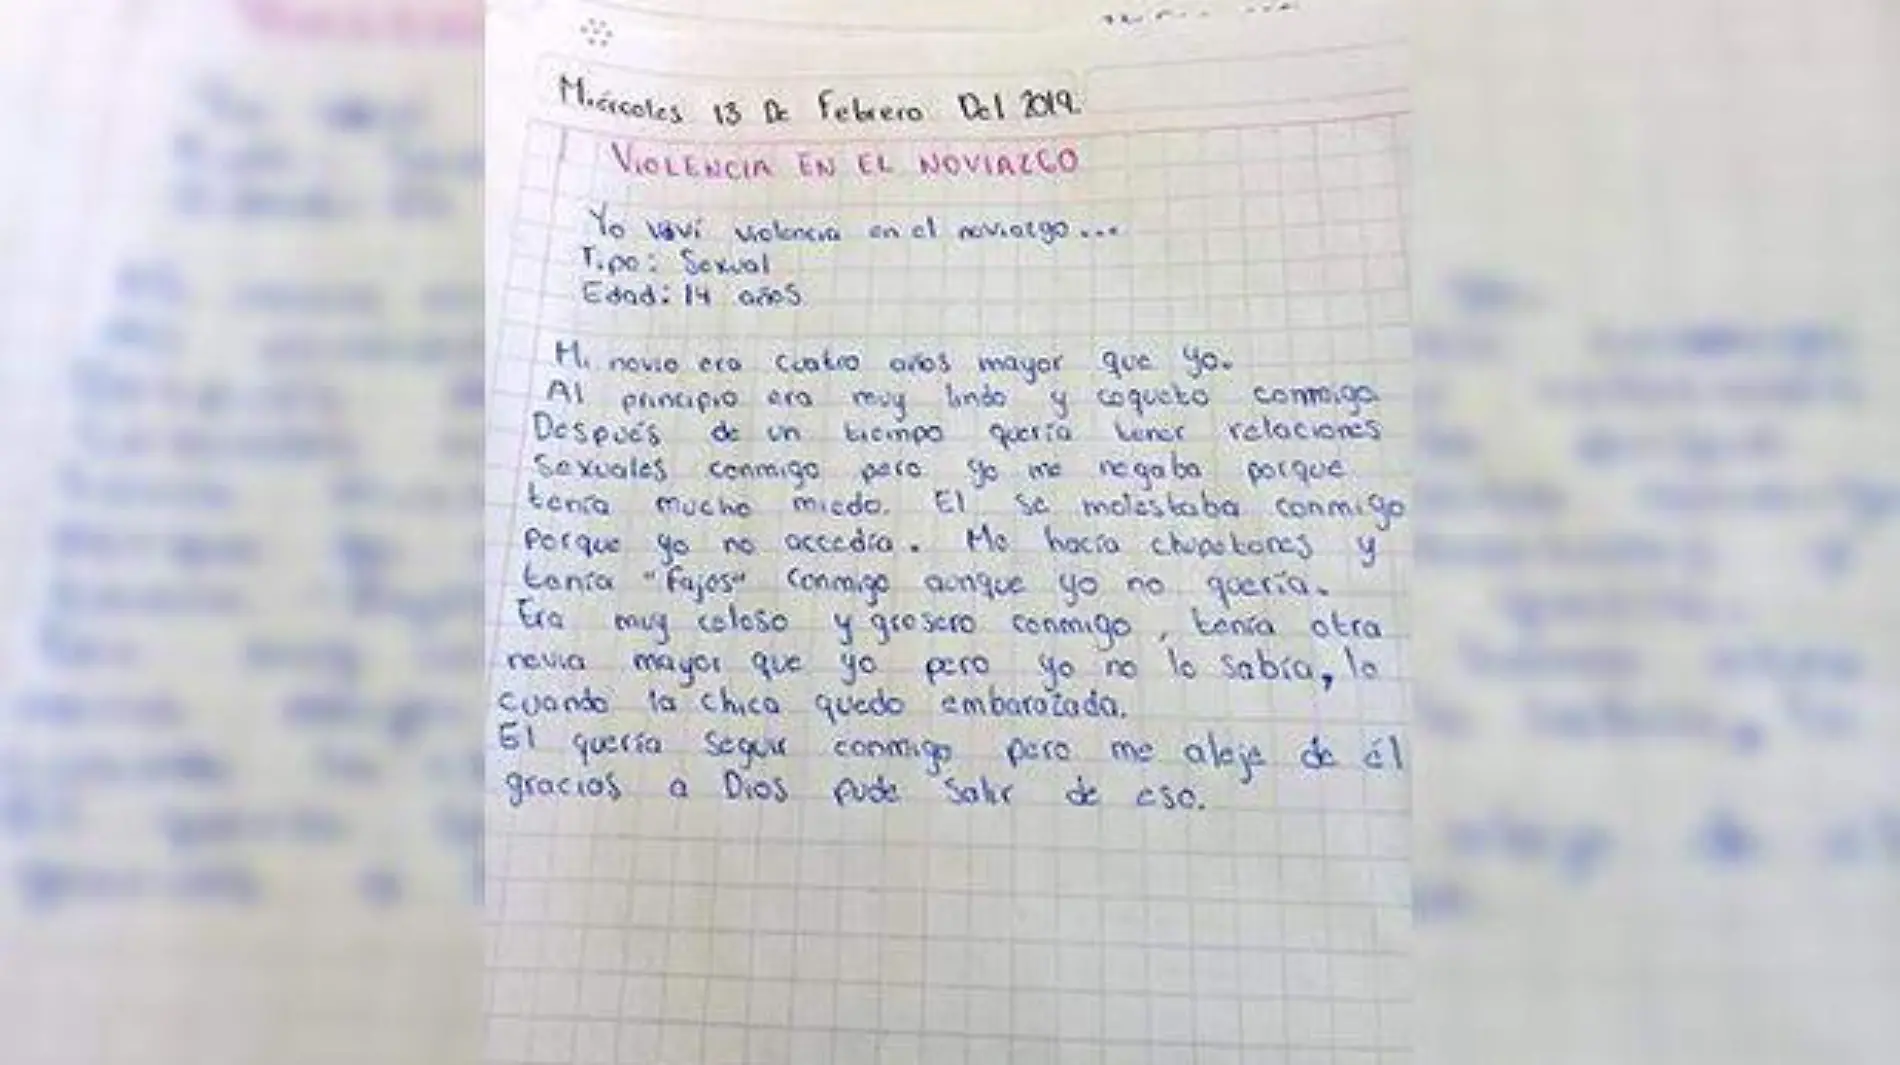 Miércoles 13 De Febrero Del 2019.
VIOLENCIA EN EL NOVIAZGO
Yo viví violencia en el noviazgo...
Tipo: Sexual
Edad: 14 años
Mi novio era cuatro años mayor que yo.
Al principio era muy lindo y coqueto conmigo
Después de un tiempo quería tener relaciones
sexuales conmigo pero yo me negaba porque
tenía mucho miedo. El se molestaba conmigo
porque yo no accedía. Me hacía chupetones y
tenía "fajes" conmigo aunque yo no quería.
Era muy celoso y grosero conmigo, tenía otra
novia mayor que yo pero yo no lo sabía, lo
cuando la chica quedo embarazada.
El quería seguir conmigo pero me aleje de él
gracias a Dios pude salir de eso.